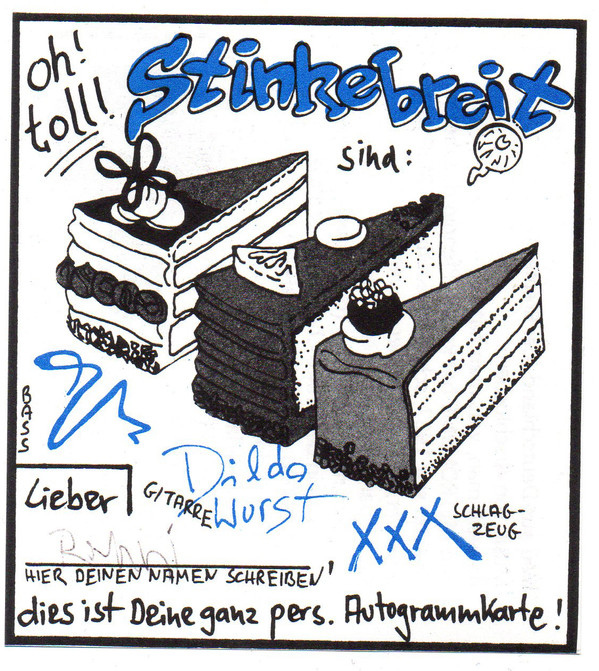 oh!
toll!
Stinkebreit
sind:
BASS
Dilda
Wurst
GITARRE
XXX
SCHLAG-
ZEUG
Lieber
HIER DEINEN NAMEN SCHREIBEN!
dies ist Deine ganz pers. Autogrammkarte!